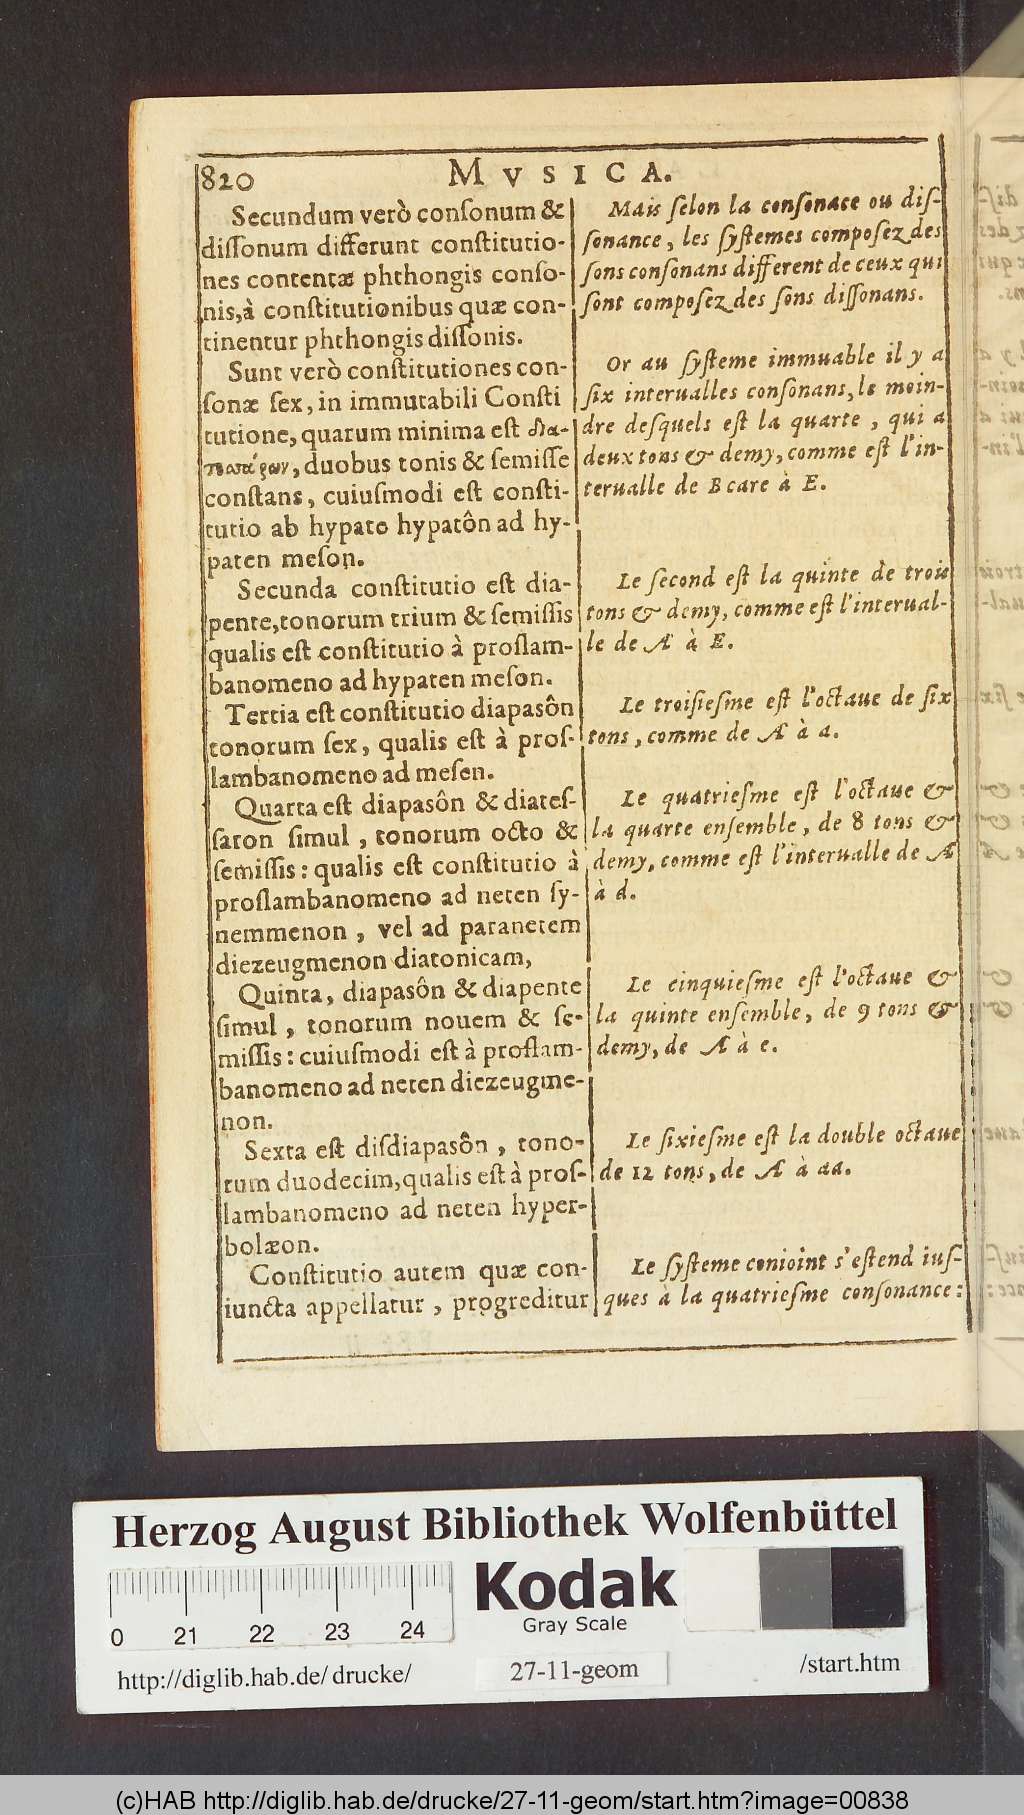 820
MVSICA.
Secundum verò conſonum &
diſſonum differunt conſtitutio-
nes contentæ phthongis conſo-
nis,à conſtitutionibus quæ con-
tinentur phthongis diſſonis.
Sunt verò conſtitutiones con-
ſonæ ſex, in immutabili Conſti
tutione, quarum minima eſt δια-
, duobus tonis & ſemiſſe
conſtans, cuiuſmodi eſt conſti-
tutio ab hypate hypatôn ad hy-
paten meſon.
Secunda conſtitutio eſt dia-
pente,tonorum trium & ſemiſſis
qualis eſt conſtitutio à proſlam-
banomeno ad hypaten meſon.
Tertia eſt conſtitutio diapasôn
tonorum ſex, qualis eſt à proſ-
lambanomeno ad meſen.
Quarta eſt diapasôn & diateſ-
ſaron ſimul , tonorum octo &
ſemiſſis: qualis eſt conſtitutio à
proſlambanomeno ad neten ſy-
nemmenon , vel ad paranetem
diezeugmenon diatonicam,
Quinta, diapasôn & diapente
ſimul , tonorum nouem & ſe-
miſſis: cuiuſmodi eſt à proſlam-
banomeno ad neten diezeugme-
non.
Sexta eſt diſdiapasôn , tono-
rum duodecim,qualis eſt à proſ-
lambanomeno ad neten hyper-
bolæon.
Conſtitutio autem quæ con-
iuncta appellatur , progreditur
Mais ſelon la conſonace ou diſ-
ſonance, les ſyſtemes compoſez des
ſons conſonans different de ceux qui
ſont compoſez des ſons diſſonans.
Or au ſyſteme immuable il y a
ſix interualles conſonans, le moin-
dre deſquels eſt la quarte , qui a
deux tons & demy, comme eſt l'in-
terualle de B care à E.
Le ſecond eſt la quinte de trois
tons & demy, comme eſt l'interual-
le de A à E.
Le troiſieſme eſt l'octaue de ſix
tons, comme de A à a.
Le quatrieſme eſt l'octaue &
la quarte enſemble, de 8 tons &
demy, comme eſt l'interualle de A
à d.
Le cinquieſme eſt l'octaue &
la quinte enſemble, de 9 tons &
demy, de A à e.
Le ſixieſme eſt la double octaue
de 12 tons, de A à aa.
Le ſyſteme conioint s'eſtend iuſ-
ques à la quatrieſme conſonance:
Herzog August Bibliothek Wolfenbüttel
Kodak
Gray Scale
0 21 22 23 24
http://diglib.hab.de/drucke/ 27-11-geom /start.htm
(c)HAB http://diglib.hab.de/drucke/27-11-geom/start.htm?image=00838